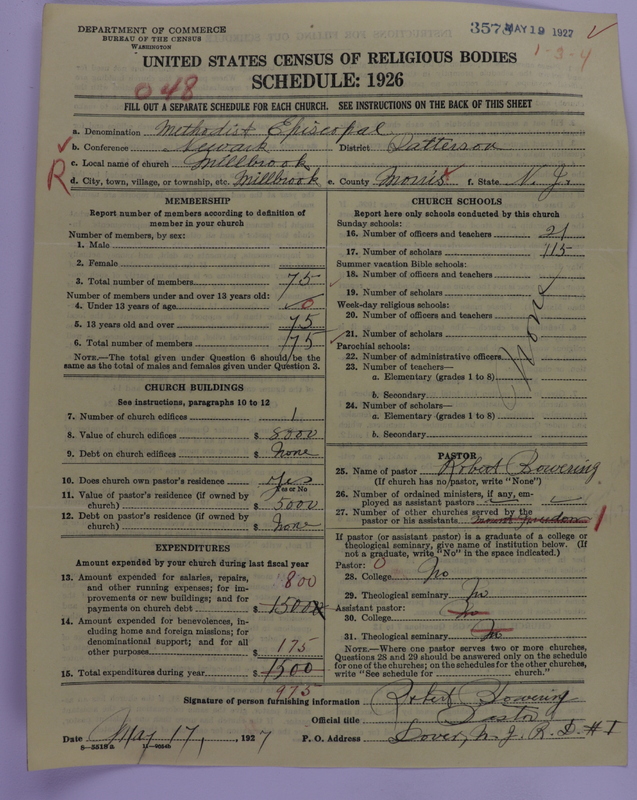 DEPARTMENT OF COMMERCE
BUREAU OF THE CENSUS
WASHINGTON
3573 MAY 19 1927
1-3-4
UNITED STATES CENSUS OF RELIGIOUS BODIES
SCHEDULE: 1926
048
FILL OUT A SEPARATE SCHEDULE FOR EACH CHURCH. SEE INSTRUCTIONS ON THE BACK OF THIS SHEET
a. Denomination Methodist Episcopal
b. Conference Newark District Patterson
c. Local name of church Millbrook
R
d. City, town, village, or township, etc. Millbrook e. County Morris f. State N. J.
MEMBERSHIP
Report number of members according to definition of member in your church
Number of members, by sex:
1. Male
2. Female
3. Total number of members 75
Number of members under and over 13 years old:
4. Under 13 years of age 0
5. 13 years old and over 75
6. Total number of members 75
NOTE.—The total given under Question 6 should be the
same as the total of males and females given under Question 3.
CHURCH BUILDINGS
See instructions, paragraphs 10 to 12
7. Number of church edifices 1
8. Value of church edifices $ 8000
9. Debt on church edifices $ None
10. Does church own pastor's residence Yes
Yes or No
11. Value of pastor's residence (if owned by
church) $ 5000
12. Debt on pastor's residence (if owned by
church) $ None
EXPENDITURES
Amount expended by your church during last fiscal year
13. Amount expended for salaries, repairs, 800
and other running expenses; for im-
provements or new buildings; and for
payments on church debt $ 1500
14. Amount expended for benevolences, in-
cluding home and foreign missions; for
denominational support; and for all
other purposes $ 175
15. Total expenditures during year $ 1500
975
CHURCH SCHOOLS
Report here only schools conducted by this church
Sunday schools:
16. Number of officers and teachers 21
17. Number of scholars 115
Summer vacation Bible schools:
18. Number of officers and teachers
19. Number of scholars
Week-day religious schools:
20. Number of officers and teachers
21. Number of scholars
None
Parochial schools:
22. Number of administrative officers
23. Number of teachers—
a. Elementary (grades 1 to 8)
b. Secondary
24. Number of scholars—
a. Elementary (grades 1 to 8)
b. Secondary
PASTOR
25. Name of pastor Robert Bowering
(If church has no pastor, write "None")
26. Number of ordained ministers, if any, em-
ployed as assistant pastors
27. Number of other churches served by the
pastor or his assistants Mount Freedom 1
If pastor (or assistant pastor) is a graduate of a college or
theological seminary, give name of institution below. (If
not a graduate, write "No" in the space indicated.)
Pastor: 0
28. College No
29. Theological seminary No
Assistant pastor:
30. College No
31. Theological seminary No
NOTE.—Where one pastor serves two or more churches,
Questions 28 and 29 should be answered only on the schedule
for one of the churches; on the schedules for the other churches,
write "See schedule for church."
Signature of person furnishing information Robert Bowering
Official title Pastor
Date May 17, 1927 P. O. Address Dover, N. J. R. D. # 1
8—5518a